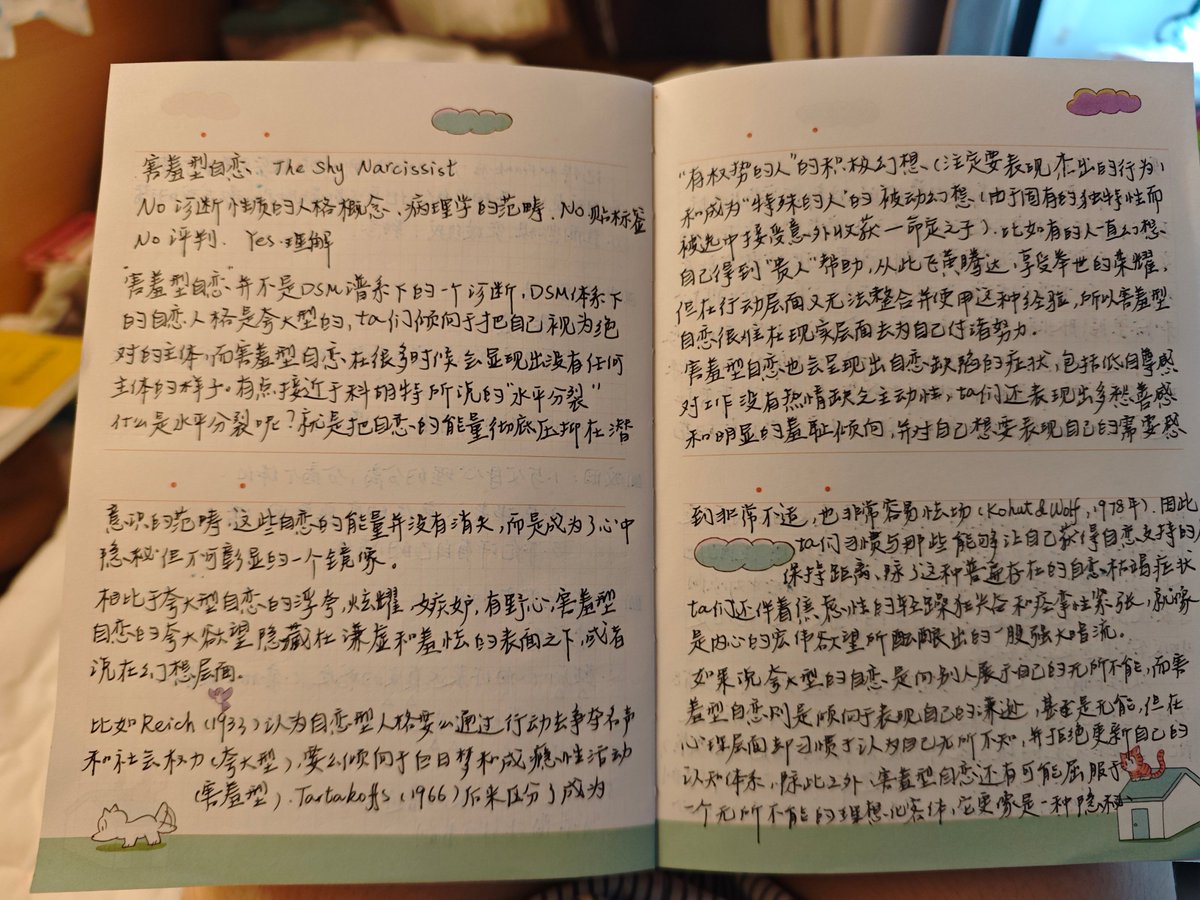 害羞型自恋 The Shy Narcissist
No 诊断性质的人格概念、病理学的范畴. No 贴标签
No 评判. Yes 理解
"害羞型自恋"并不是DSM谱系下的一个诊断, DSM体系下
的自恋人格是夸大型的, ta们倾向于把自己视为绝
对的主体, 而害羞型自恋在很多时候会显现出没有任何
主体的样子。有点接近于科胡特所说的"水平分裂"
什么是水平分裂呢？就是把自恋的能量彻底压抑在潜
意识的范畴, 这些自恋的能量并没有消失, 而是成为了心中
隐秘但不可彰显的一个镜像。
相比于夸大型自恋的浮夸, 炫耀、嫉妒, 有野心, 害羞型
自恋的夸大欲望隐藏在谦虚和羞怯的表面之下, 或者
说在幻想层面。
比如Reich (1933) 认为自恋型人格要么通过行动去争夺名声
和社会权力(夸大型), 要么倾向于白日梦和成瘾性活动
(害羞型). Tartakoffs (1966) 后来区分了成为
"有权势的人"的积极幻想、(注定要表现杰出的行为)
和成为"特殊的人"的被动幻想 (由于固有的独特性而
被选中接受意外收获—命定之子). 比如有的人一直幻想
自己得到"贵人"帮助, 从此飞黄腾达, 享受举世的荣耀,
但在行动层面又无法整合并使用这种经验, 所以害羞型
自恋很难在现实层面去为自己付诸努力。
害羞型自恋也会呈现出自恋缺陷的症状, 包括低自尊感
对工作没有热情缺乏主动性, ta们还表现出多愁善感
和明显的羞耻倾向, 并对自己想要表现自己的需要感
到非常不适, 也非常容易怯场 (Kohut & Wolf, 1978年). 因此
ta们习惯与那些能够让自己获得自恋支持的人
保持距离、除了这种普遍存在的自恋枯竭症状
ta们还伴着焦虑性的轻躁狂兴奋和痉挛性紧张, 就像
是内心的宏伟欲望所酝酿出的一股强大暗流。
如果说夸大型的自恋是向别人展示自己的无所不能, 而害
羞型自恋则是倾向于表现自己的谦逊, 甚至是无能, 但在
心理层面却习惯于认为自己无所不知, 并拒绝更新自己的
认知体系, 除此之外, 害羞型自恋还有可能屈服于
一个无所不能的理想化客体, 它更像是一种隐秘